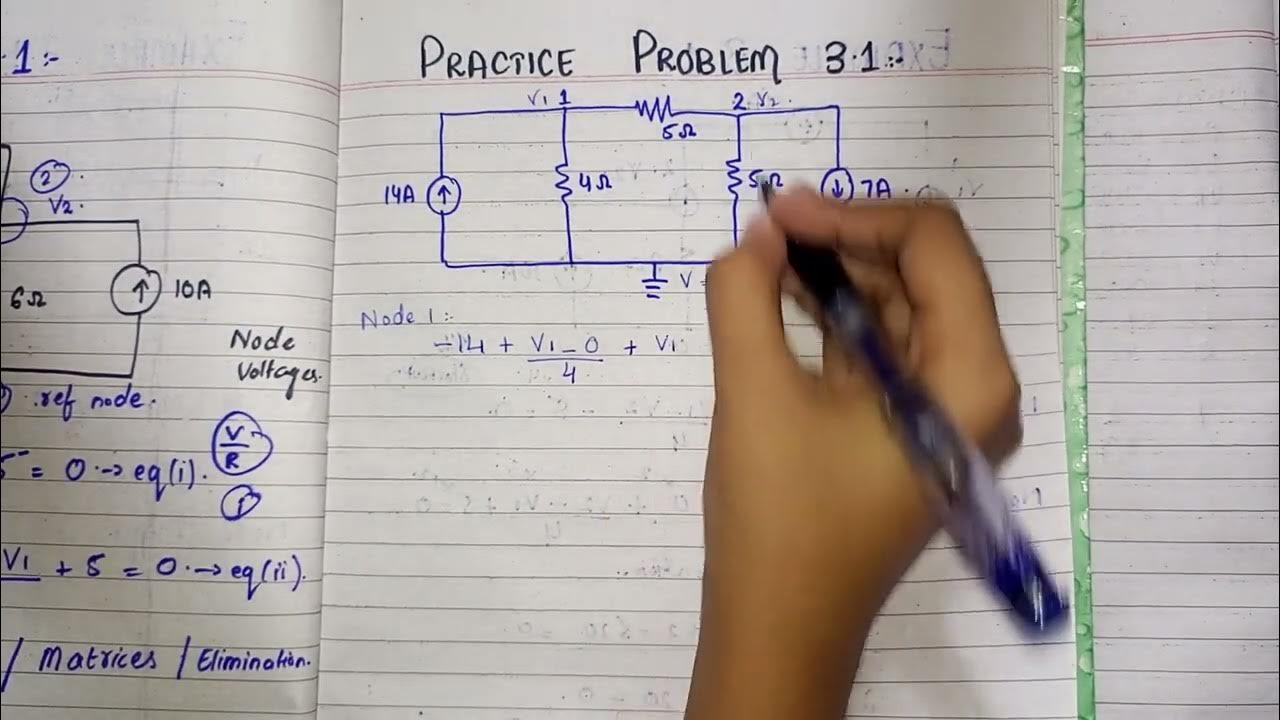 .1:-
2
V2.
6Ω
10A
Node
Voltages.
ref node.
= 0 → eq(i).
V
R
V1 + 5 = 0. → eq(ii).
/ Matrices / Elimination.
PRACTICE PROBLEM 3.1:-
V1 1
5Ω
2 V2.
14A
4Ω
5Ω
7A
V =
Node 1:-
-14 + V1 - 0 + V1
4